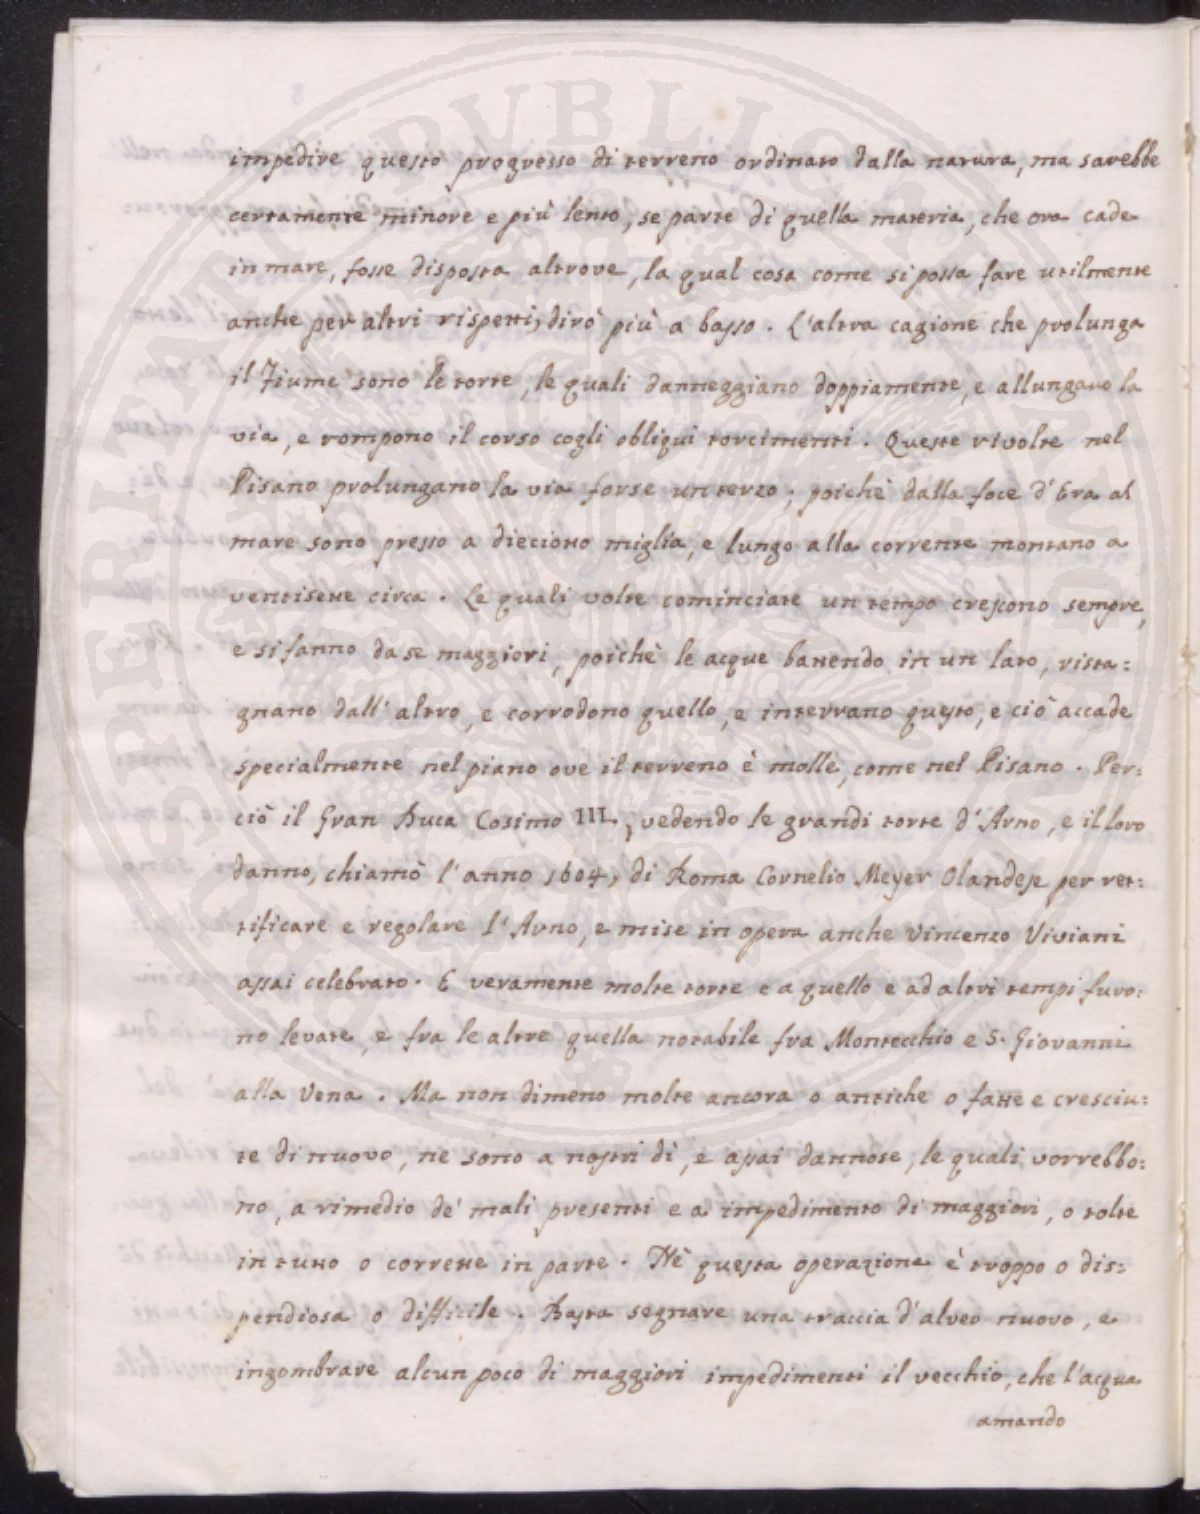 impedire questo progresso di terreno ordinato dalla natura, ma sarebbe
certamente minore e più lento, se parte di quella materia, che ora cade
in mare, fosse disposta altrove, la qual cosa come si possa fare utilmente
anche per altri rispetti, dirò più a basso. L'altra cagione che prolunga
il Fiume sono le torte, le quali danneggiano doppiamente, e allungano la
via, e rompono il corso cogli obliqui torcimenti. Queste rivolte nel
Pisano prolungano la via forse un terzo; poichè dalla foce d'Era al
mare sono presso a dieciotto miglia, e lungo alla corrente montano a
ventisette circa. Le quali volte cominciate un tempo crescono sempre,
e si fanno da se maggiori, poichè le acque battendo in un lato, rista:
gnano dall'altro, e corrodono quello, e interrano questo, e ciò accade
specialmente nel piano ove il terreno è molle, come nel Pisano. Per:
ciò il Gran Duca Cosimo III., vedendo le grandi torte d'Arno, e il loro
danno, chiamò l'anno 1684, di Roma Cornelio Meyer Olandese per ret:
tificare e regolare l'Arno, e mise in opera anche Vincenzo Viviani
assai celebrato. E veramente molte torte e a quello e ad altri tempi furo:
no levate, e fra le altre quella notabile fra Montecchio e S. Giovanni
alla Vena. Ma non dimeno molte ancora o antiche o fatte e cresciu:
te di nuovo, ne sono a nostri dì, e assai dannose, le quali vorrebbo:
no, a rimedio de' mali presenti e a impedimento di maggiori, o tolte
in tutto o corrette in parte. Nè questa operazione è troppo o dis:
pendiosa o difficile. Basta segnare una traccia d'alveo nuovo, e
ingombrare alcun poco di maggiori impedimenti il vecchio, che l'acqua
amando
BOSPERITATI PVBLICAE AVGE